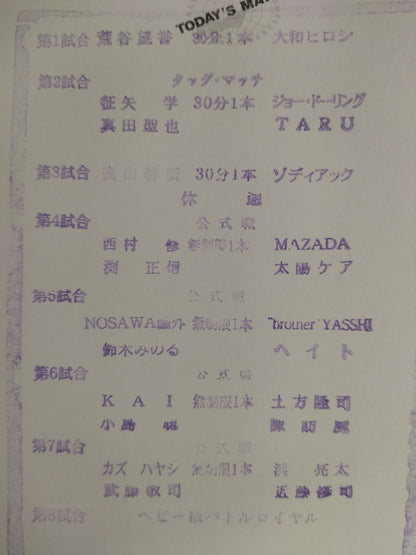 TODAY'S MA
第1試合 荒谷望誉 30分1本 大和ヒロシ
第2試合 タッグ・マッチ
征矢 学 30分1本 ジョー・ドーリング
真田聖也 TARU
第3試合 高山善廣 30分1本 ゾディアック
休憩
第4試合 公式戦
西村 修 無制限1本 MAZADA
渕 正信 太陽ケア
第5試合 公式戦
NOSAWA論外 無制限1本 "brother"YASSHI
鈴木みのる ヘイト
第6試合 公式戦
KAI 無制限1本 土方隆司
小島 聡 諏訪魔
第7試合 公式戦
カズ ハヤシ 無制限1本 浜 亮太
武藤敬司 近藤修司
第8試合 ヘビー級バトルロイヤル